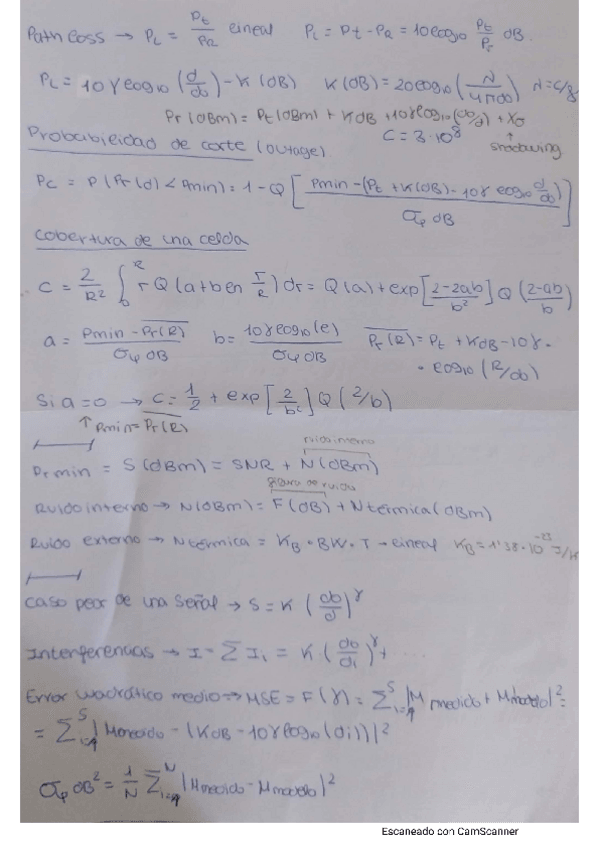 Path loss → PL = Pt/PR lineal PL = Pt - PR = 10log10 Pt/Pr dB.
PL = 10γlog10 (d/do) - K (dB) K (dB) = 20log10 (λ/4πdo) λ = c/f
Pr(dBm) = Pt(dBm) + KdB + 10γlog10(do/d) + Xσ
C = 3·10^8 ↑ shadowing
Probabilidad de corte (outage)
Pc = P(Pr(d) < Pmin) = 1 - Q [Pmin - (Pt + K(dB) - 10γ log10 d/do) / σψ dB]
Cobertura de una celda
C = 2/R² ∫0^R r Q (a + b ln r/R) dr = Q(a) + exp[2-2ab/b²] Q (2-ab/b)
a = Pmin - Pr(R) / σψ dB b = 10γlog10(e) / σψ dB Pr(R) = Pt + KdB - 10γ·
· log10 (R/do)
Si a=0 → C = 1/2 + exp [2/b²] Q (2/b)
↑ Pmin = Pr(R)
ruido interno
Prmin = S(dBm) = SNR + N(dBm)
figura de ruido
Ruido interno → N(dBm) = F(dB) + Ntérmica(dBm)
Ruido externo → Ntérmica = KB · BW · T → lineal KB = 1'38·10^-23 J/K
Caso peor de una señal → S = K (do/d)^γ
Interferencias → I = Σ Ii = K (do/di)^γ + ...
Error cuadrático medio ⇒ MSE = F(γ) = Σ i=1^S |M medido + Mmodelo|² =
= Σ i=1^S |Mmedido - (KdB - 10γlog10(di))|²
σψ dB² = 1/N Σ i=1^N |Mmedido - Mmodelo|²
Escaneado con CamScanner